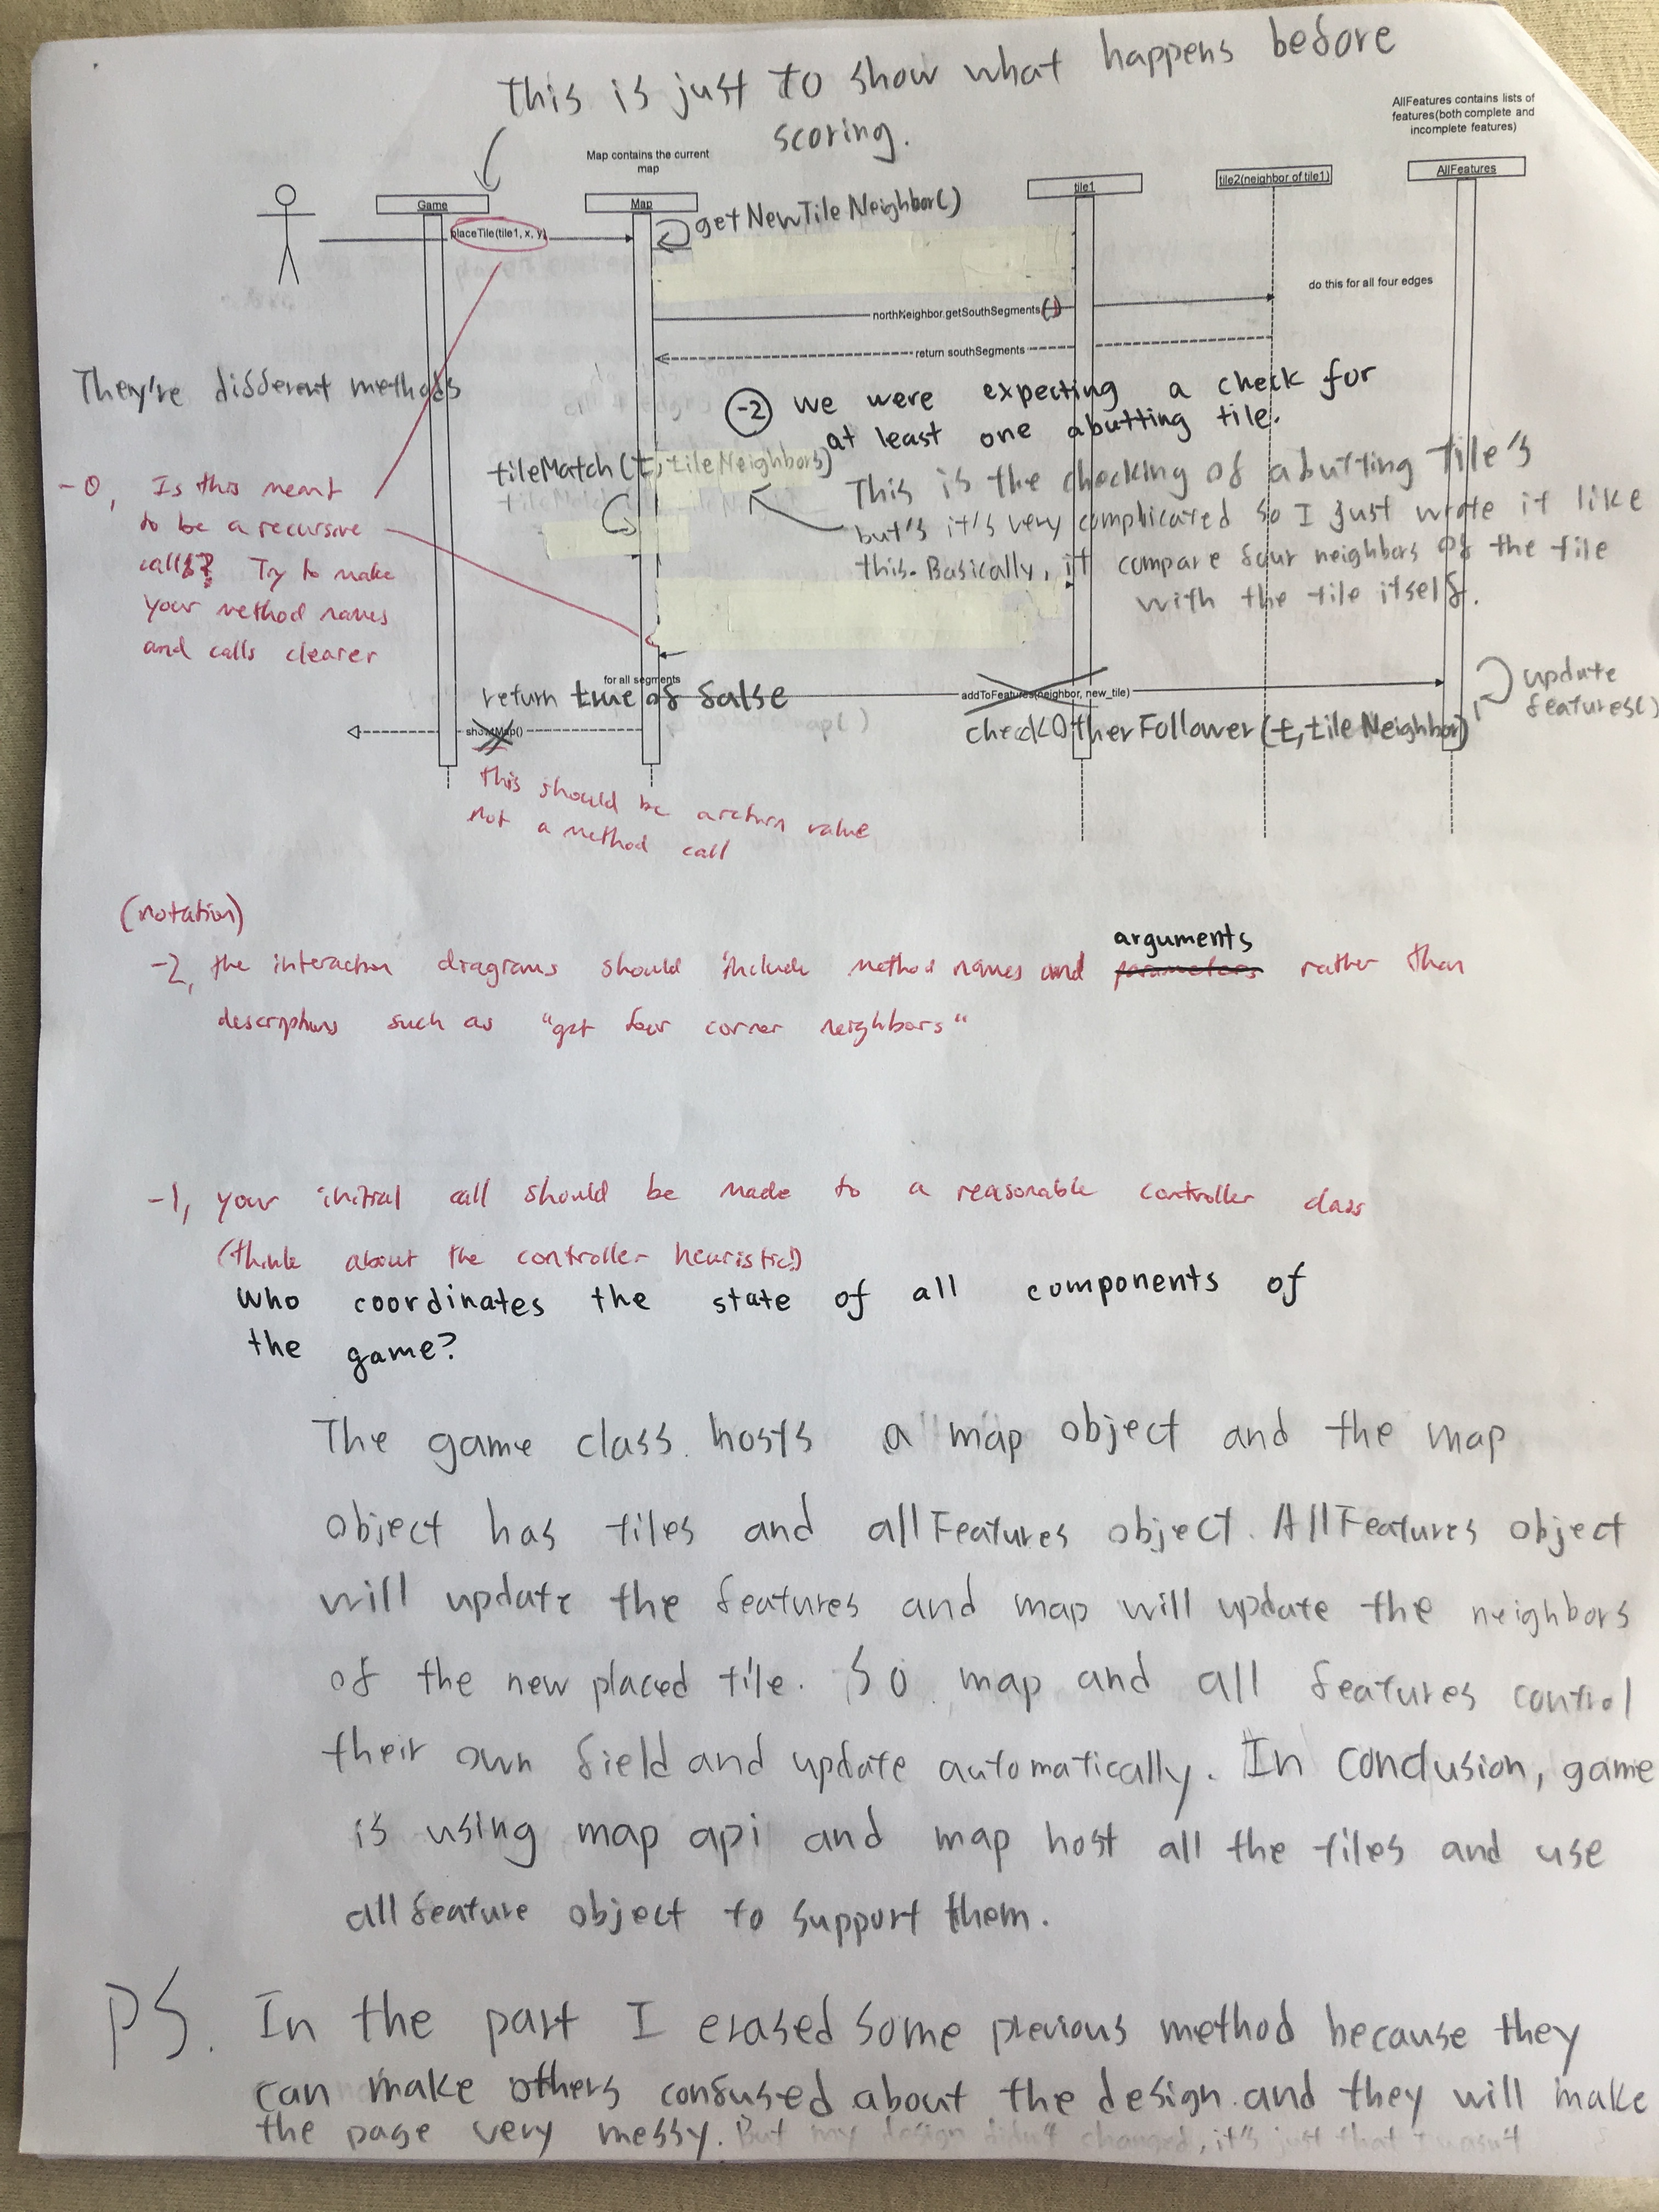 This is just to show what happens before
scoring.
AllFeatures contains lists of
features(both complete and
incomplete features)
Map contains the current
map
Game
Map
tile1
tile2(neighbor of tile1)
AllFeatures
placeTile(tile1, x, y)
getNewTileNeighbor()
do this for all four edges
northNeighbor.getSouthSegments()
return southSegments
They're different methods
-2 we were expecting a check for
at least one abutting tile.
tileMatch(t, tileNeighbors)
This is the checking of abutting tile's
but's it's very complicated so I just wrote it like
this. Basically, it compare four neighbors of the tile
with the tile itself.
-0, Is this meant
to be a recursive
call? Try to make
your method names
and calls clearer
for all segments
return true of false
addToFeatures(neighbor, new_tile)
update
features()
showMap()
checkOtherFollower(t, tileNeighbor)
This should be a return value
not a method call
(notation)
arguments
-2, the interaction diagrams should include method names and parameters rather than
descriptions such as "get four corner neighbors"
-1, your initial call should be made to a reasonable controller class
(think about the controller heuristic!)
who coordinates the state of all components of
the game?
The game class hosts a map object and the map
object has tiles and allFeatures object. AllFeatures object
will update the features and map will update the neighbors
of the new placed tile. So map and all features control
their own field and update automatically. In conclusion, game
is using map api and map host all the tiles and use
all feature object to support them.
PS. In the part I erased some previous method because they
can make others confused about the design and they will make
the page very messy. But my design didn't changed, it's just that I wasn't